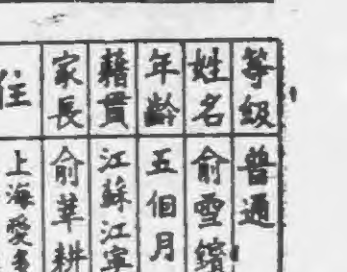 等級 普通
姓名 俞雪
年齡 五個月
籍貫 江蘇江寧
家長 俞莘耕
住 上海愛